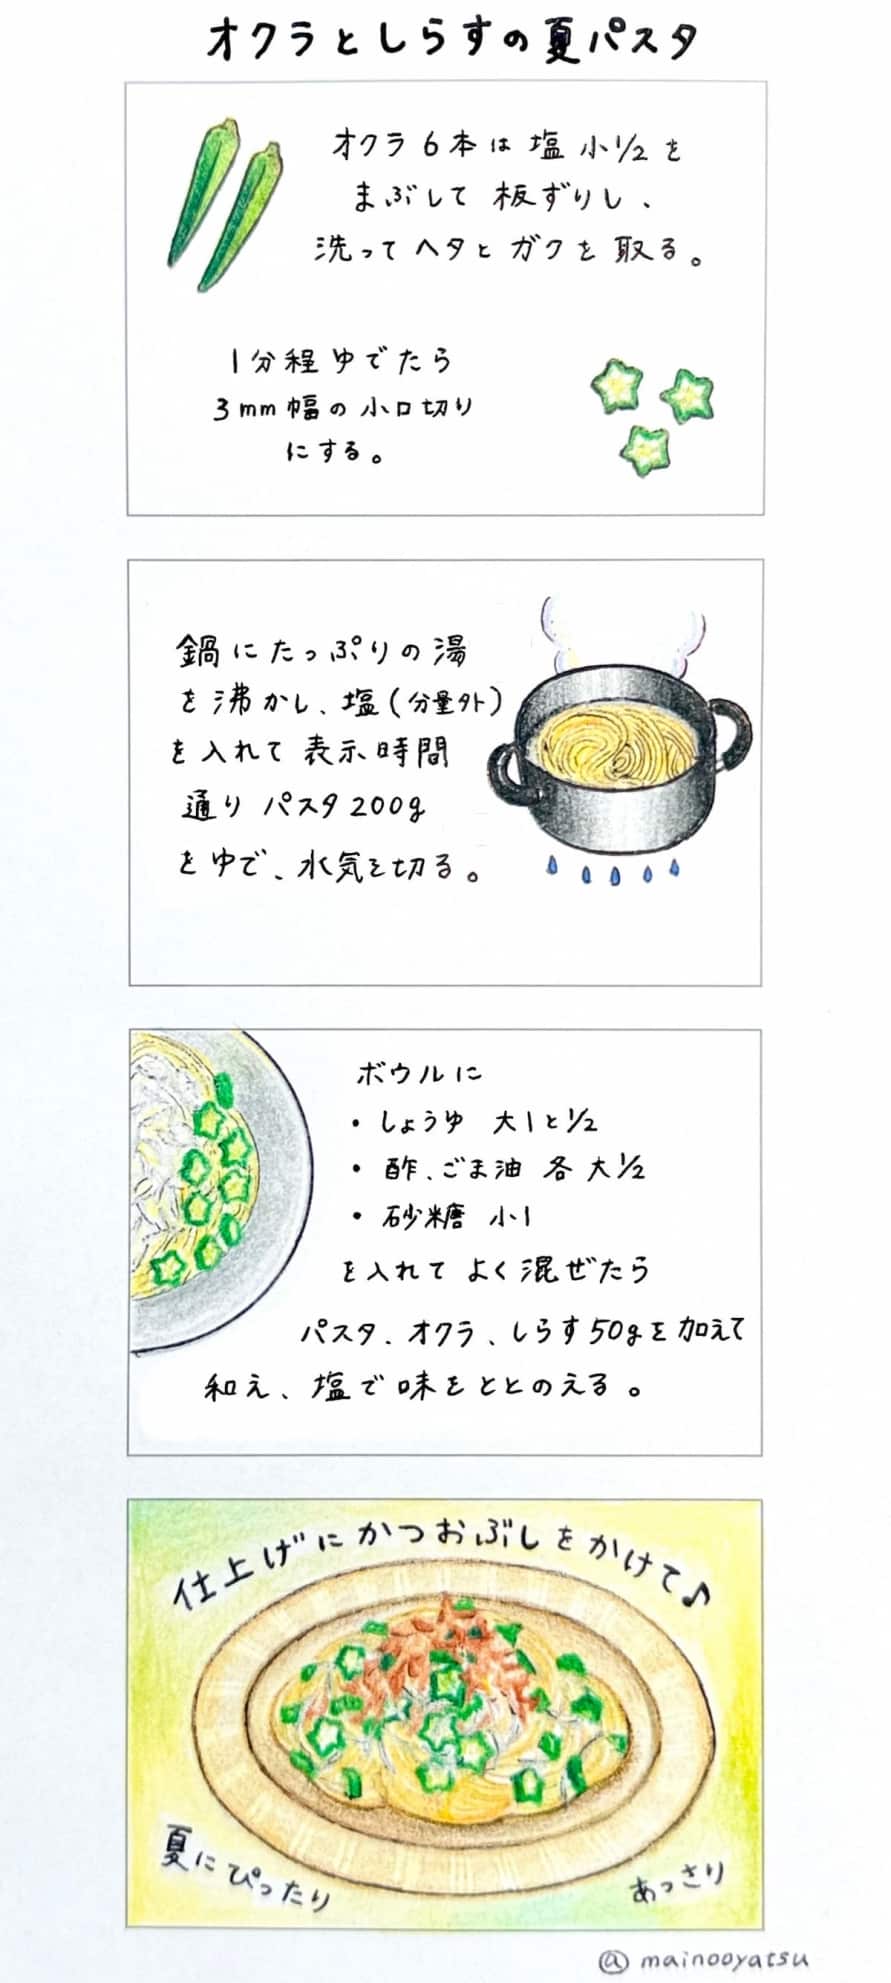 オクラとしらすの夏パスタ
オクラ6本は塩小1/2を
まぶして板ずりし、
洗ってヘタとガクを取る。
1分程ゆでたら
3mm幅の小口切り
にする。
鍋にたっぷりの湯
を沸かし、塩(分量外)
を入れて表示時間
通りパスタ200g
をゆで、水気を切る。
ボウルに
・しょうゆ 大1と1/2
・酢、ごま油 各大1/2
・砂糖 小1
を入れてよく混ぜたら
パスタ、オクラ、しらす50gを加えて
和え、塩で味をととのえる。
仕上げにかつおぶしをかけて♪
夏にぴったり
あっさり
@mainooyatsu